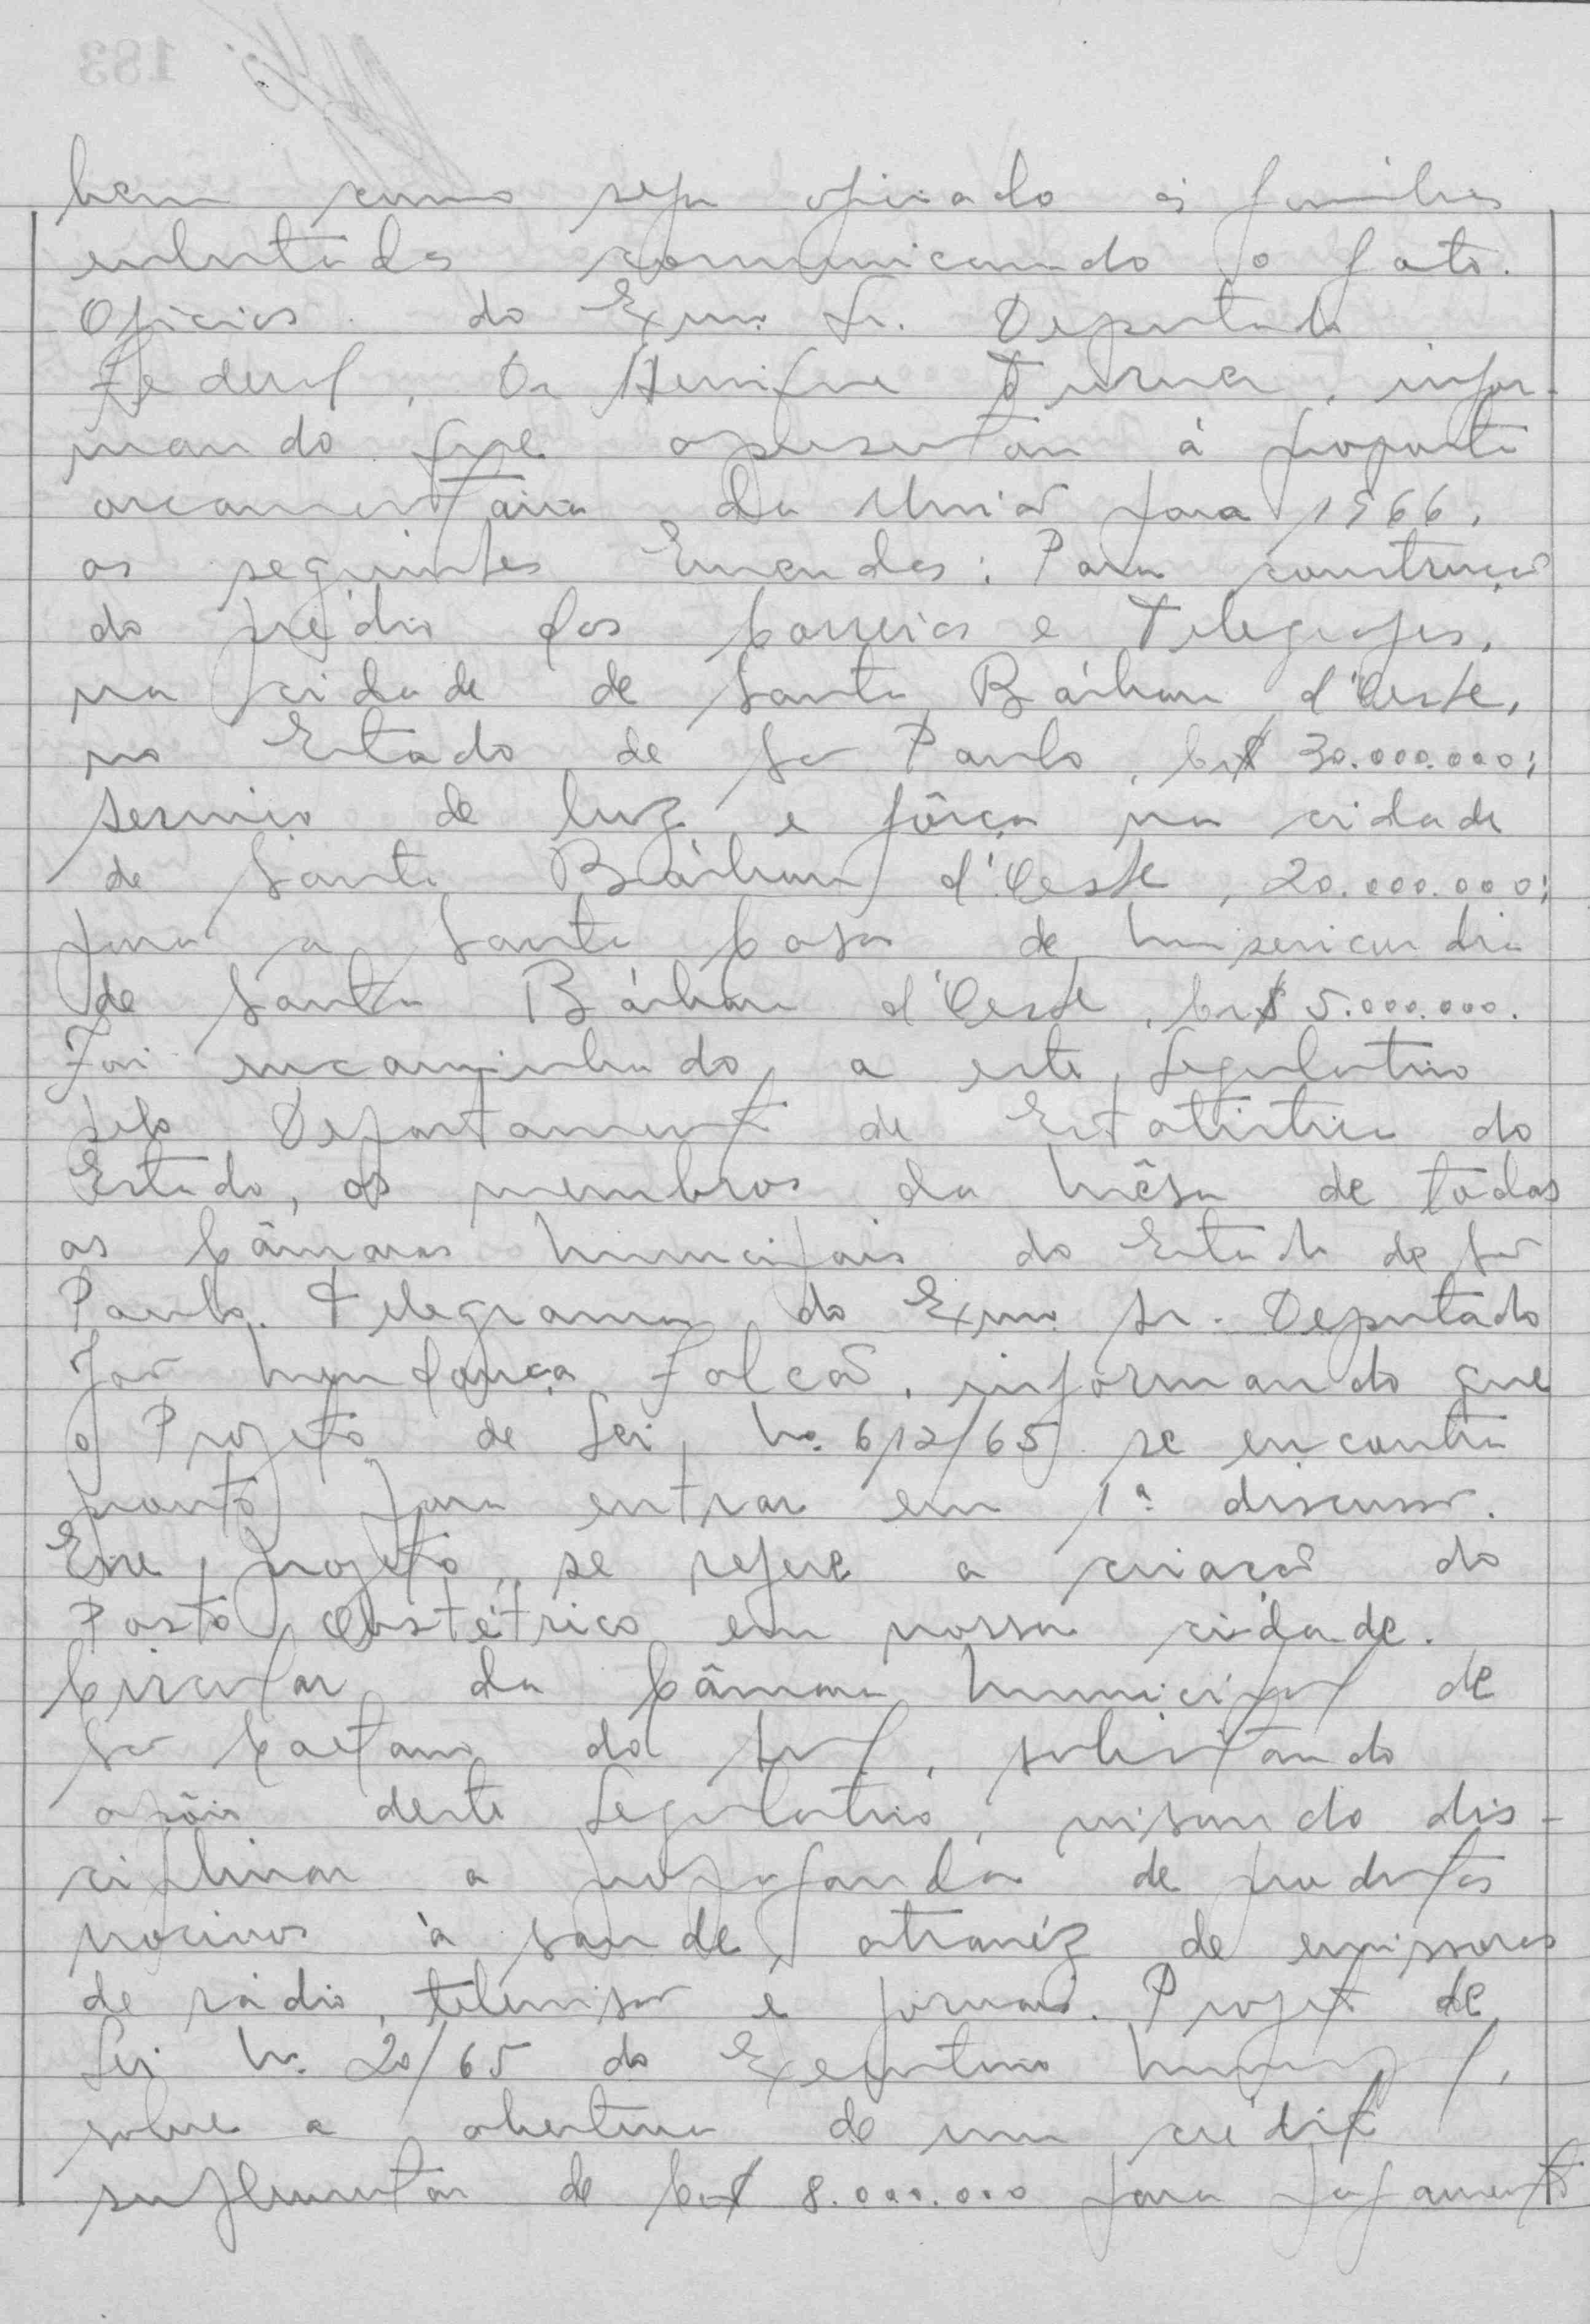 bem como seja oficiado às famílias
enlutadas comunicando o fato.
Ofícios do Exmo. Sr. Deputado
Federal, Dr Henrique Turner, infor-
mando que apresentou à proposta
orcamentária da União para 1966,
as seguintes Emendas: Para construção
do prédio dos Correios e Telegrafos,
na cidade de Santa Bárbara d'Oeste,
no Estado de São Paulo, Cr$ 30.000.000;
serviço de luz e fôrça na cidade
de Santa Bárbara d'Oeste, 20.000.000;
para a Santa Casa de Misericordia
de Santa Bárbara d'Oeste, Cr$ 5.000.000.
Foi encaminhado a este Legislativo
pelo Departamento de Estatistica do
Estado, os membros da Mêsa de tôdas
as Câmaras Municipais do Estado de São
Paulo. Telegrama do Exmo Sr. Deputado
João Mendonça Falcão, informando que
o Projeto de Lei, No. 612/65 se encontra
pronto para entrar em 1ª discussão.
Esse projeto, se refere a criação do
Posto Obstétrico em nossa cidade.
Circular da Câmara Municipal de
São Caetano do Sul, solicitando
apôio deste Legislativo, visando dis-
ciplinar a propaganda de produtos
nocivos à saude, atravéz de emissoras
de rádio, televisão e jornais. Projeto de
Lei No. 20/65 do Executivo Municipal,
sobre a abertura de um crédito
suplementar de Cr$ 8.000.000 para pagamento